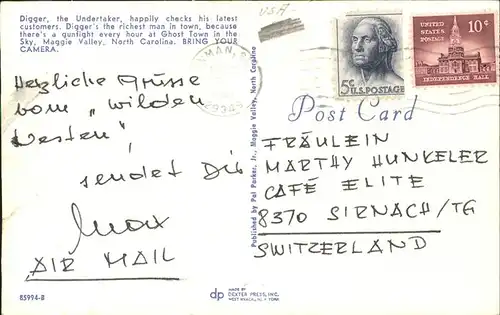 Digger, the Undertaker, happily checks his latest
customers. Digger's the richest man in town, because
there's a gunfight every hour at Ghost Town in
the Sky, Maggie Valley, North Carolina. BRING YOUR
CAMERA.
USA
Herzliche Grüsse
vom „wilden
Westen",
sendet Dir
Max
AIR MAIL
85994-B
Published by Pal Parker, Jr., Maggie Valley, North Carolina
dp
MADE BY
DEXTER PRESS, INC.
WEST NYACK, N. Y.
5¢ U.S.POSTAGE
UNITED
STATES
POSTAGE
10¢
INDEPENDENCE HALL
Post Card
FRÄULEIN
MARTHY HUNKELER
CAFÉ ELITE
8370 SIRNACH/TG
SWITZERLAND